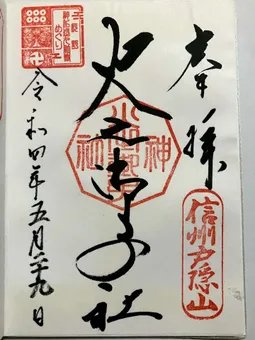 奉拝
信州戸隠山
火之御子社
神社
令和四年五月二十九日